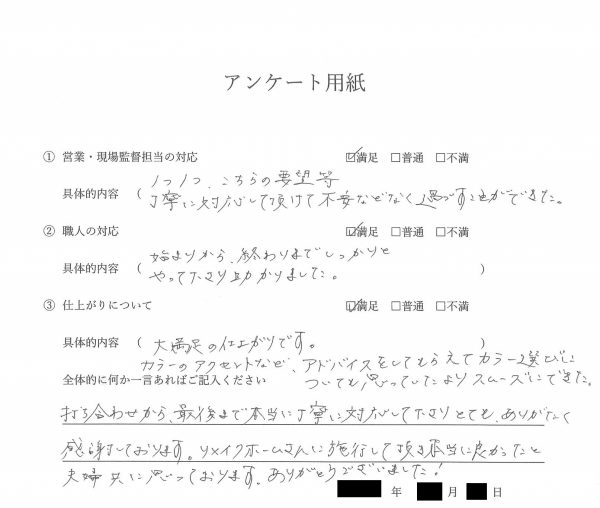 アンケート用紙
① 営業・現場監督担当の対応 ☑満足 □普通 □不満
1つ1つ、こちらの要望等
具体的内容 ( 丁寧に対応して頂けて不安などなく過ごすことができた。
② 職人の対応 ☑満足 □普通 □不満
始まりから、終わりまでしっかりと
具体的内容 ( やって下さり助かりました。 )
③ 仕上がりについて ☑満足 □普通 □不満
具体的内容 ( 大満足の仕上がりです。 )
カラーのアクセントなど、アドバイスをしてもらえてカラー選びに
全体的に何か一言あればご記入ください ついても思っていたよりスムーズにできた。
打ち合わせから、最後まで本当に丁寧に対応して下さりとても、ありがたく
感謝しております。リメイクホームさんに施行して頂き本当に良かったと
夫婦共に思っております。ありがとうございました!
年 月 日